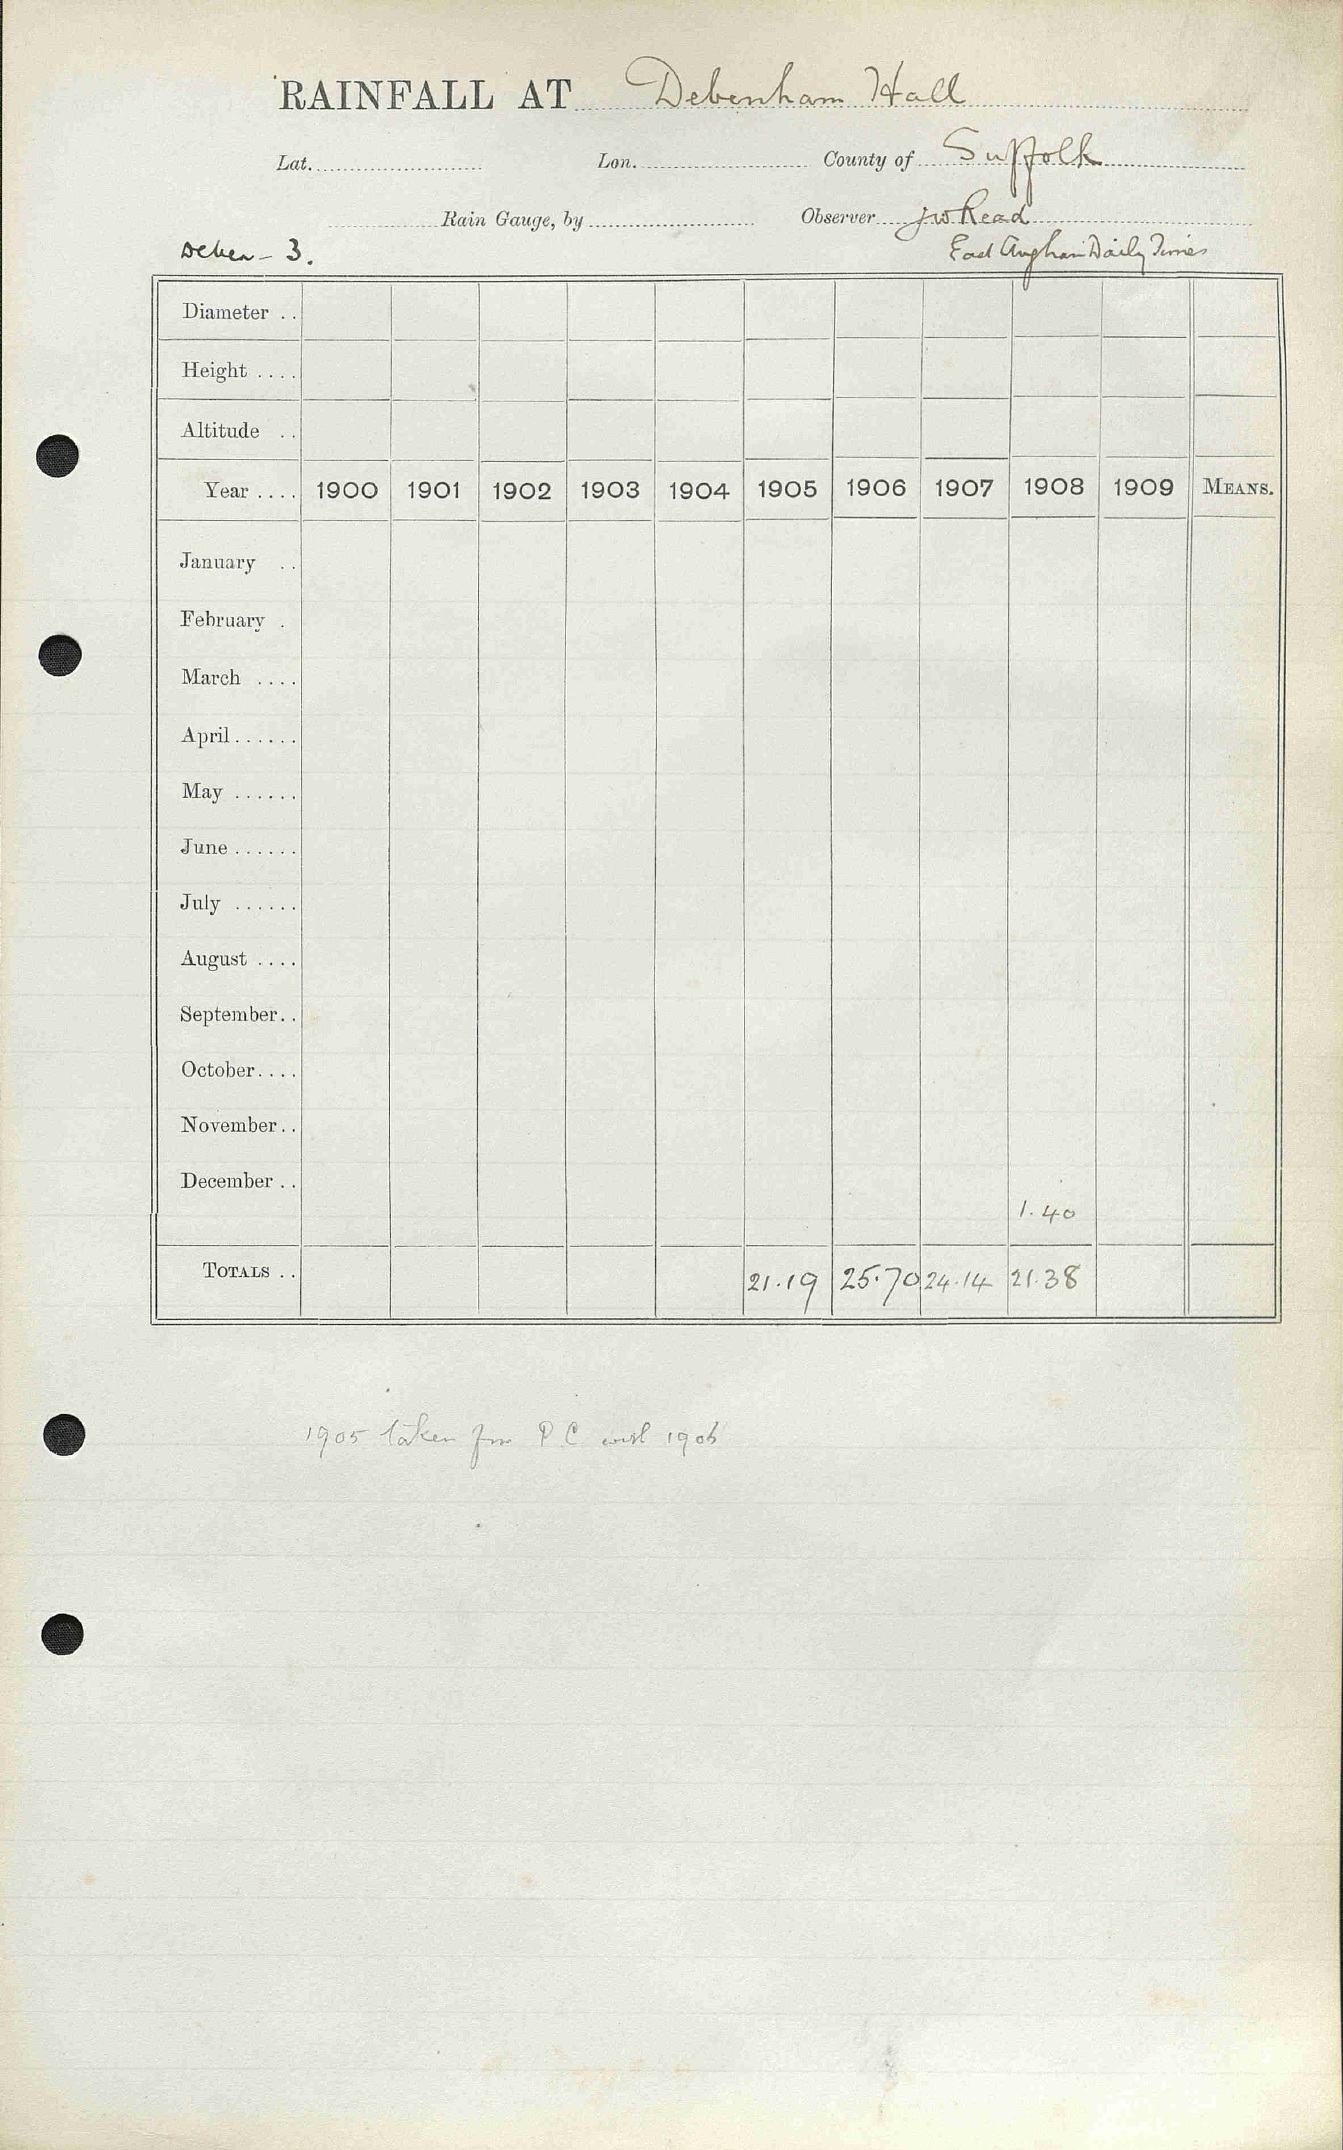 RAINFALL AT Debenham Hall
Lat. Lon. County of Suffolk
Rain Gauge, by Observer J W Read
Deben - 3. East Anglian Daily Times
Diameter . .
Height . . . .
Altitude . .
Year . . . . 1900 1901 1902 1903 1904 1905 1906 1907 1908 1909 MEANS.
January . .
February .
March . . . .
April . . . . . .
May . . . . . .
June . . . . . .
July . . . . . .
August . . . .
September . .
October . . . .
November . .
December . .
1.40
TOTALS . . 21.19 25.70 24.14 21.38
1905 taken from P C 1906